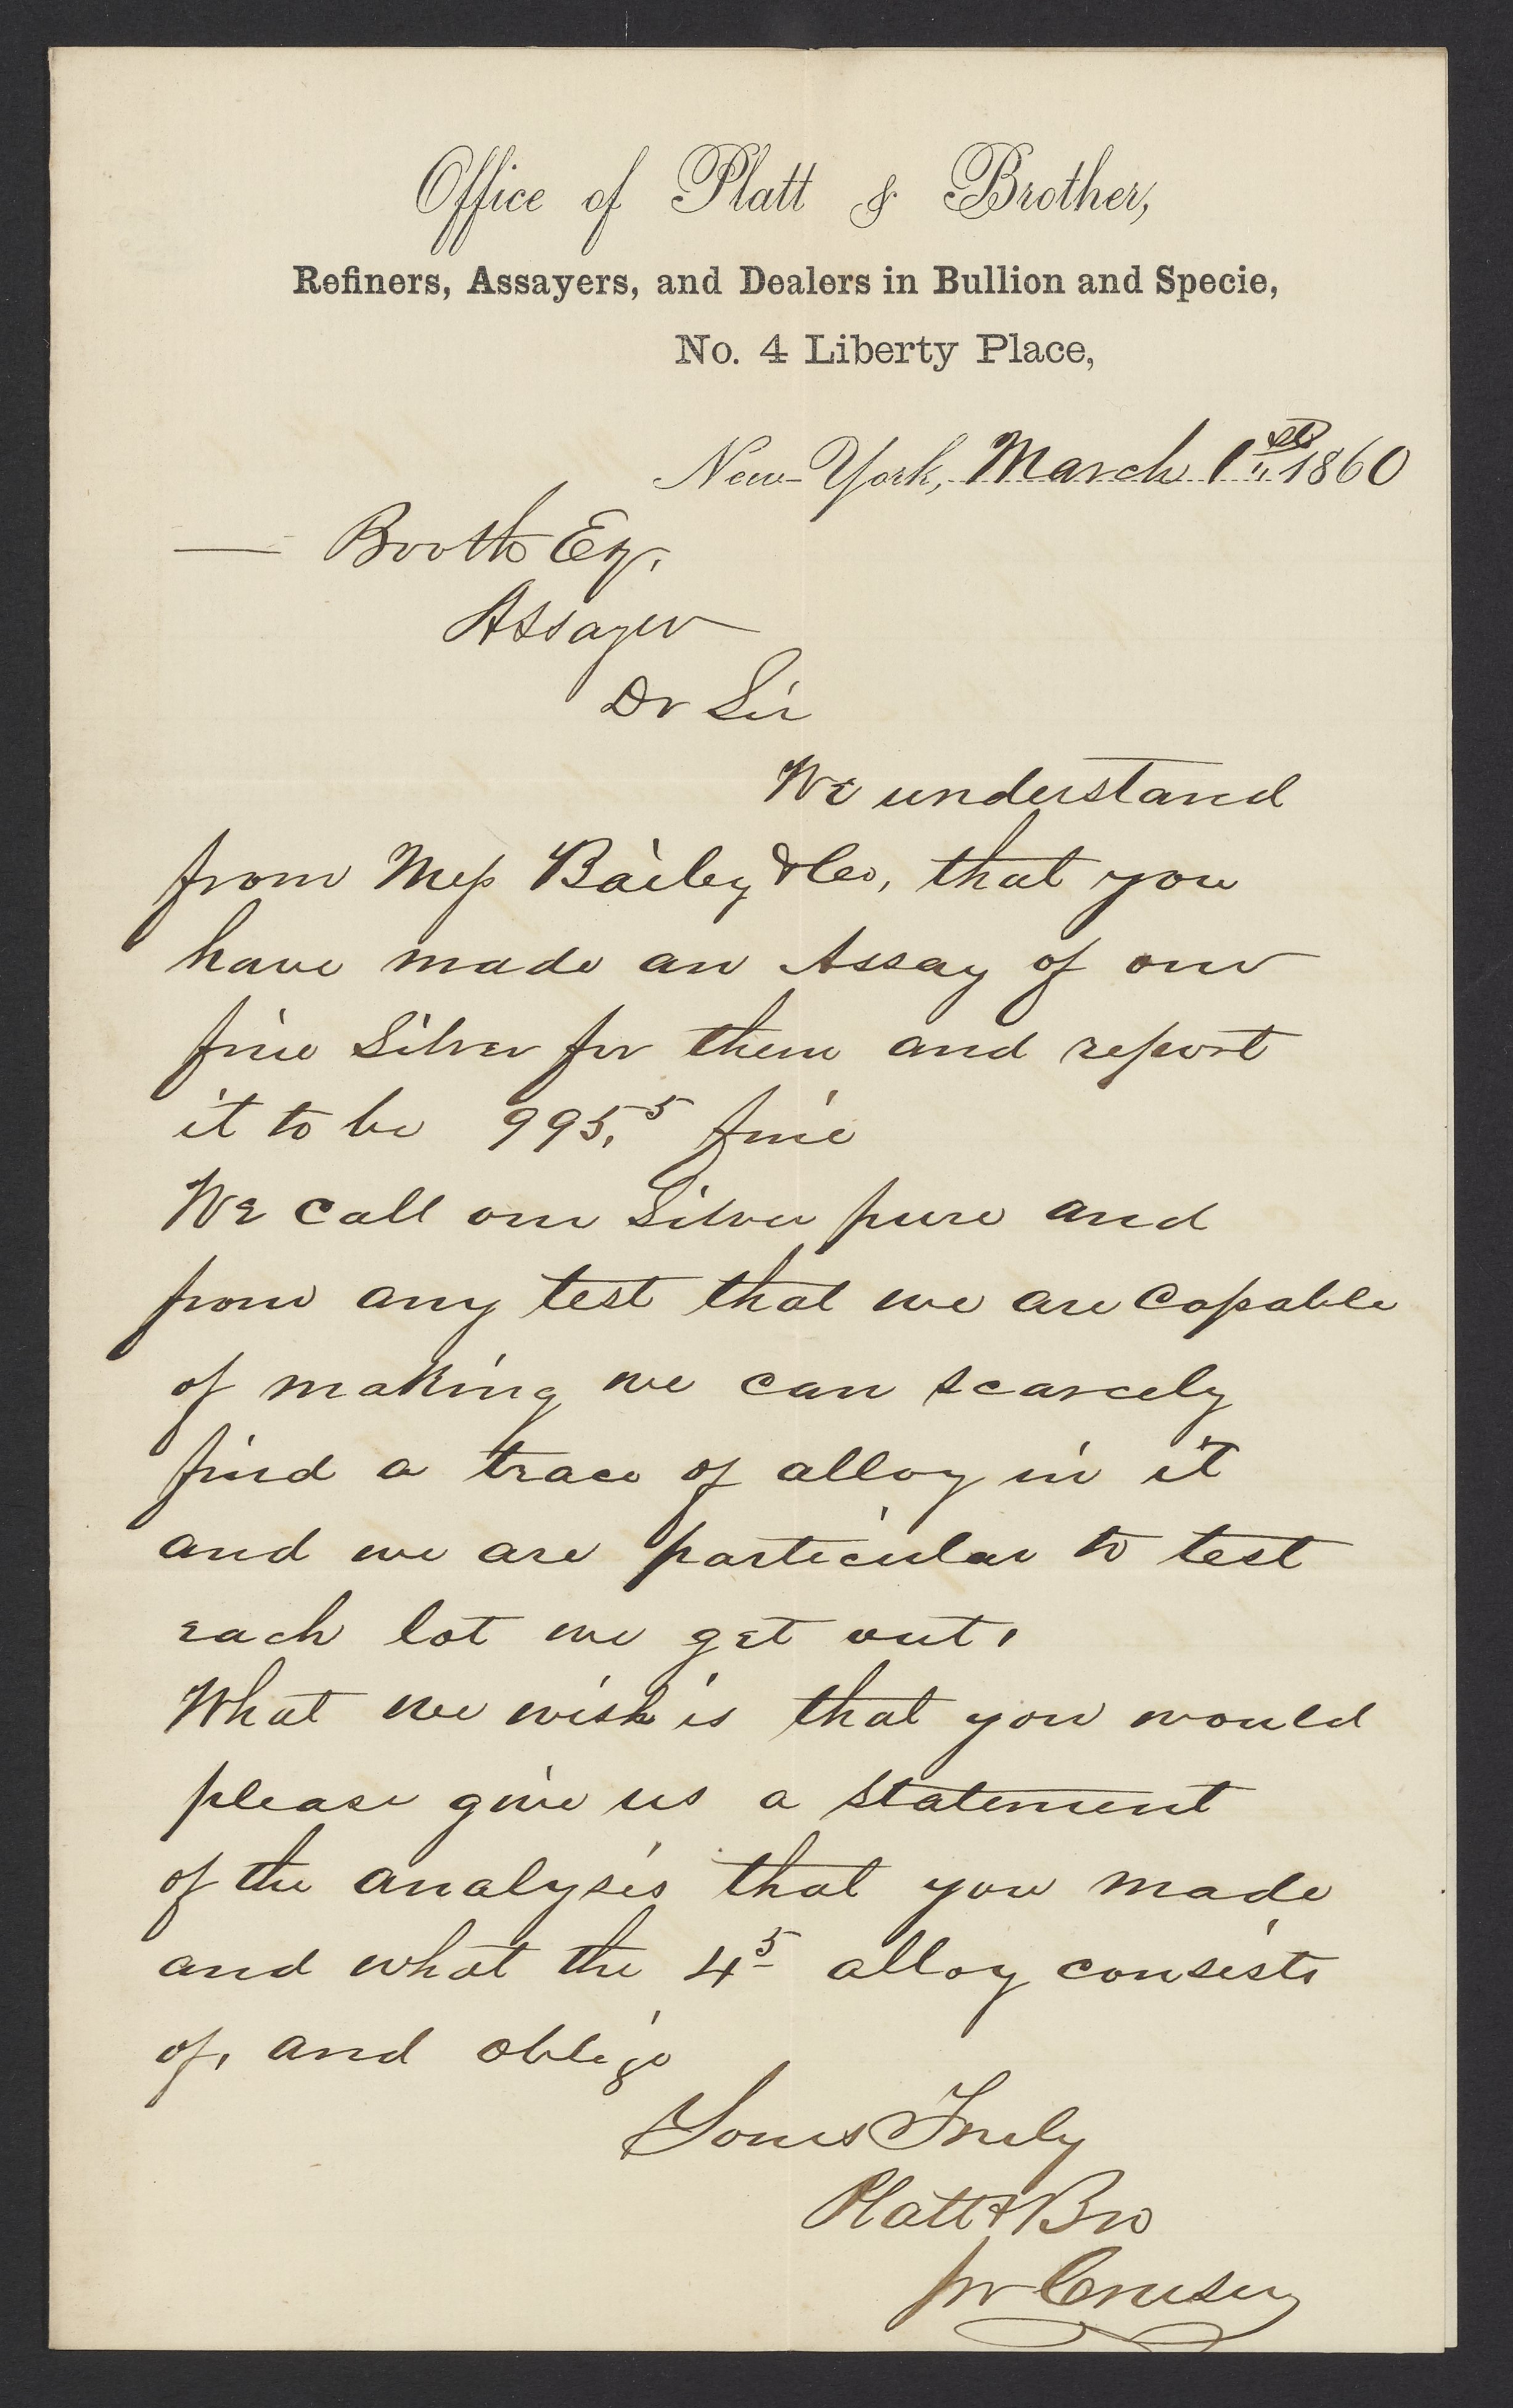 Office of Platt & Brother,
Refiners, Assayers, and Dealers in Bullion and Specie,
No. 4 Liberty Place,
New-York, March 1st 1860
— Booth Esq.
Assayer
Dr Sir
We understand
from Mess Bailey & Co, that you
have made an Assay of our
fine Silver for them and report
it to be 995.5 fine
We call our Silver pure and
from any test that we are capable
of making we can scarcely
find a trace of alloy in it
and we are particular to test
each lot we get out.
What we wish is that you would
please give us a statement
of the analysis that you made
and what the 4 5 alloy consists
of, and oblige
Yours Truly
Platt & Bro
pr